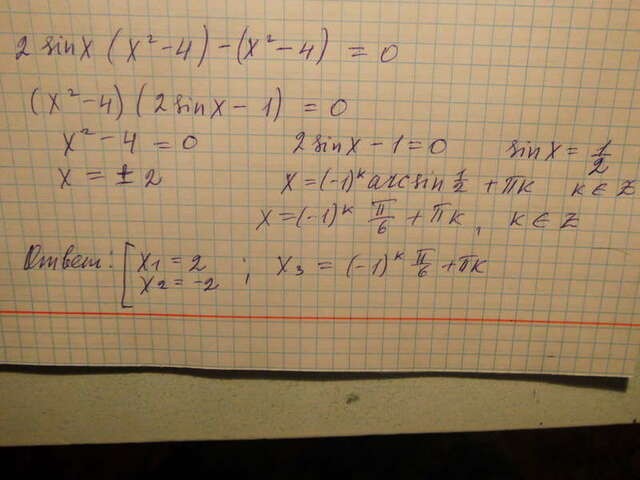 2 sin x (x² - 4) - (x² - 4) = 0
(x² - 4) (2 sin x - 1) = 0
x² - 4 = 0 2 sin x - 1 = 0 sin x = 1/2
x = ± 2 x = (-1)ᵏ arcsin 1/2 + πk k ∈ Z
x = (-1)ᵏ π/6 + πk, k ∈ Z
Ответ: [ x₁ = 2 ; x₃ = (-1)ᵏ π/6 + πk
x₂ = -2